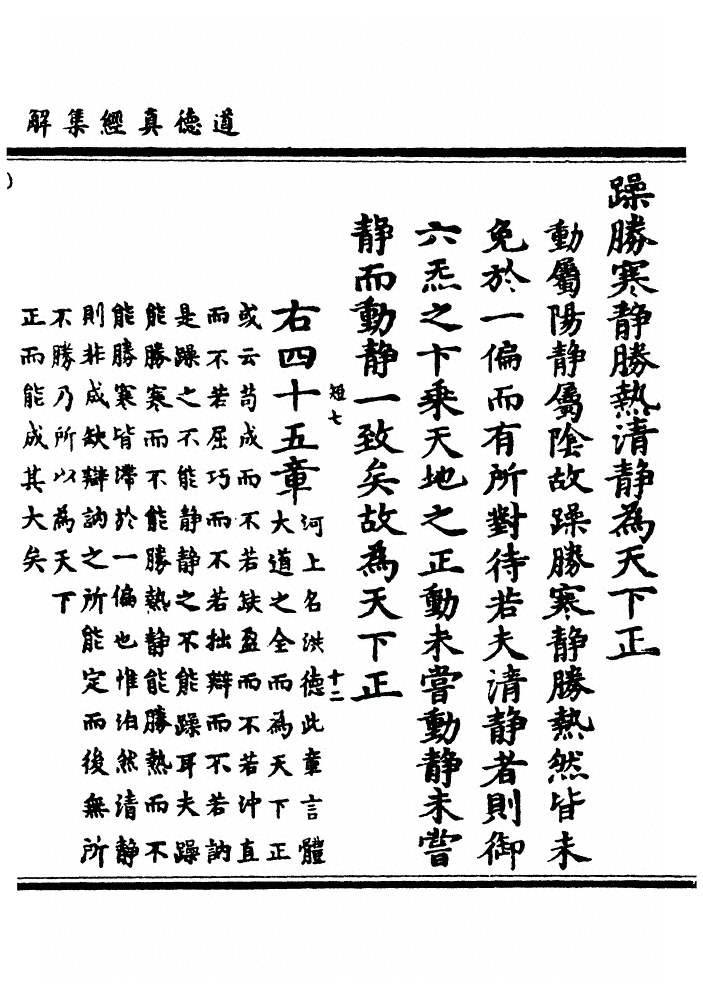 道德真經集解
躁勝寒静勝熱清静為天下正
動屬陽静屬陰故躁勝寒静勝熱然皆未
免於一偏而有所對待若夫清静者則御
六炁之卞乘天地之正動未嘗動静未嘗
静而動静一致矣故為天下正
短七 十二
右四十五章
河上名洪德此章言體
大道之全而為天下正
或云苟成而不若缺盈而不若沖直
而不若屈巧而不若拙辯而不若訥
是躁之不能静静之不能躁耳夫躁
能勝寒而不能勝熱静能勝熱而不
能勝寒皆滯於一偏也惟泊然清静
則非成缺辯訥之所能定而後無所
不勝乃所以為天下
正而能成其大矣